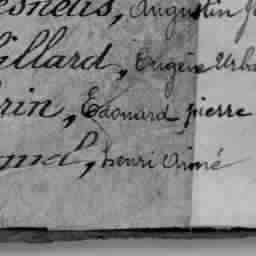 esnetis, Augustin J
illard, Eugène Urba
rin, Edouard pierre
and, henri Aimé